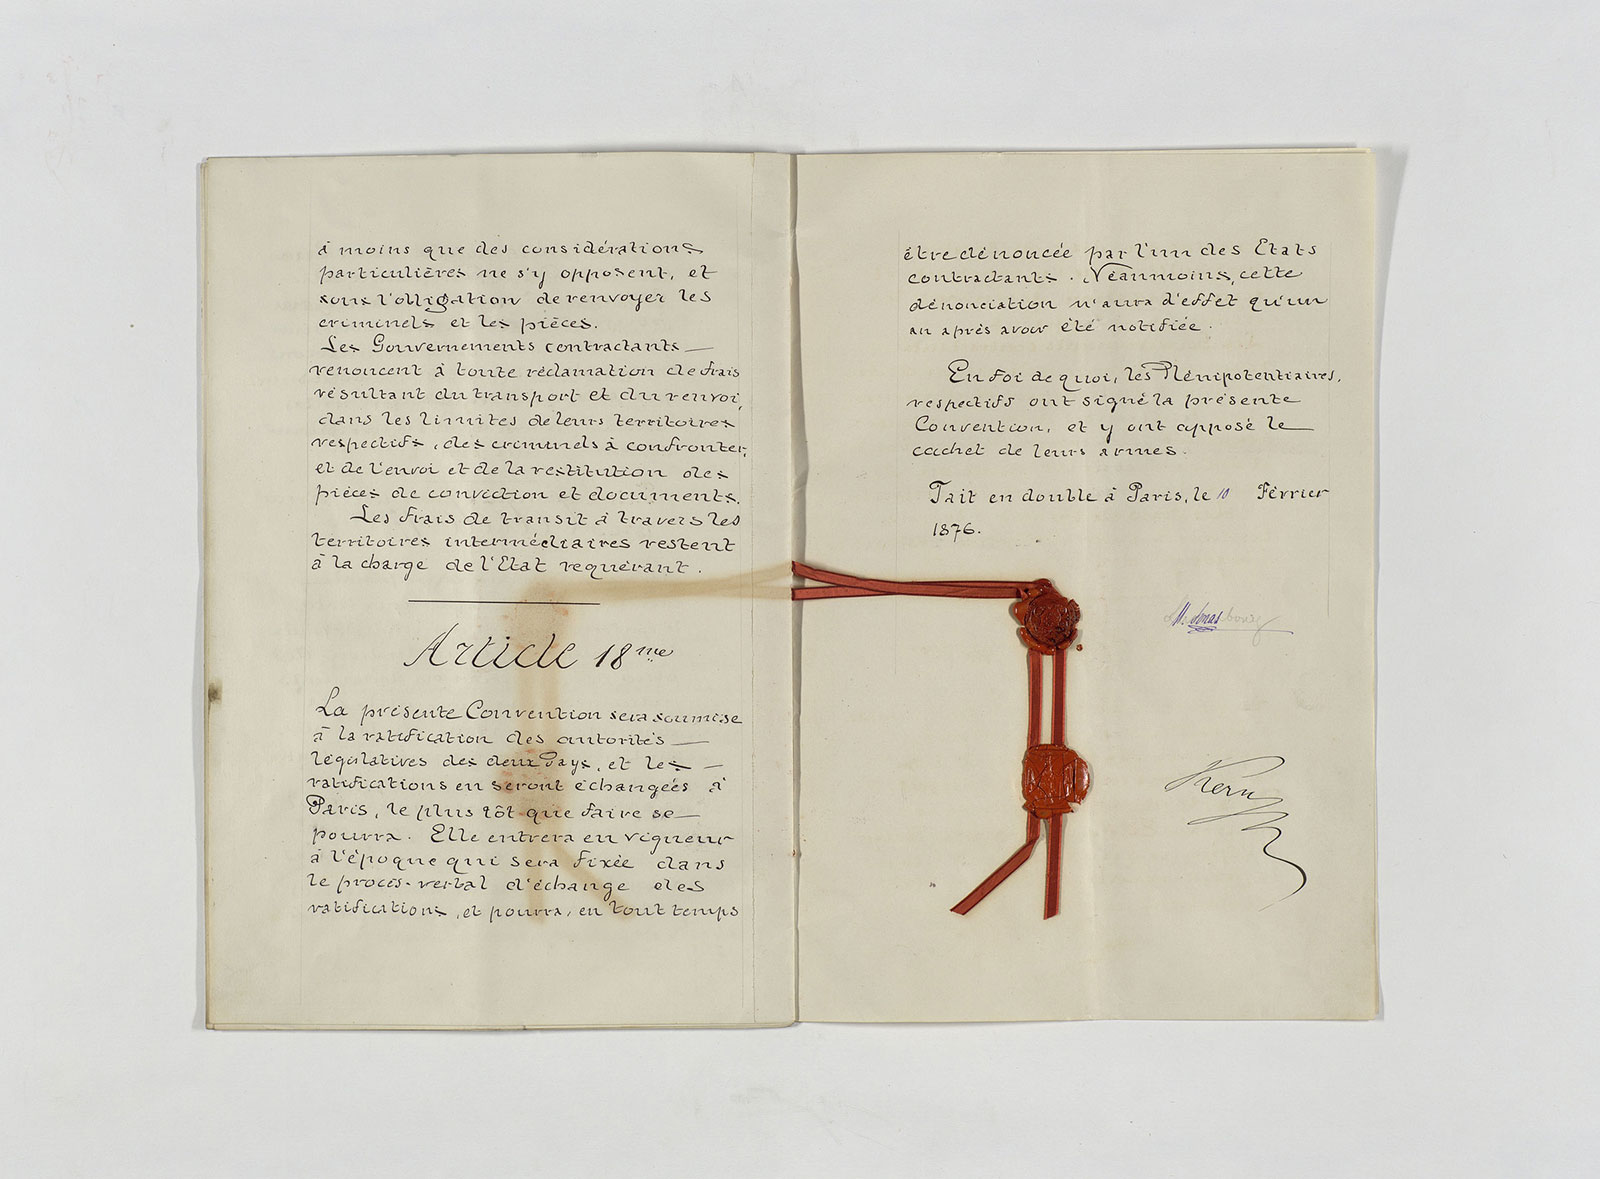 à moins que des considérations
particulières ne s'y opposent, et
sous l'olligation de renvoyer les
criminels et les pièces.
Les Gouvernements contractants —
renoncent à toute réclamation de frais
résultant du transport et du renvoi,
dans les limites de leurs territoires
respectifs, des criminels à confronter,
et de l'envoi et de la restitution des
pièces de conviction et documents.
Les frais de transit à travers les
territoires intermédiaires restent
à la charge de l'Etat requérant.
Article 18me
La présente Convention sera soumise
à la ratification des autorités —
législatives des deux Pays, et les —
ratifications en seront échangées à
Paris, le plus tôt que faire se —
pourra. Elle entrera en vigueur
à l'époque qui sera fixée dans
le procès-verbal d'échange des
ratifications, et pourra, en tout temps
être dénoncée par l'un des Etats
contractants. Néanmoins, cette
dénonciation n'aura d'effet qu'un
an après avoir été notifiée.
En foi de quoi, les Plénipotentiaires,
respectifs ont signé la présente
Convention, et y ont apposé le
cachet de leurs armes.
Fait en double à Paris, le 10 Février
1876.
Kern